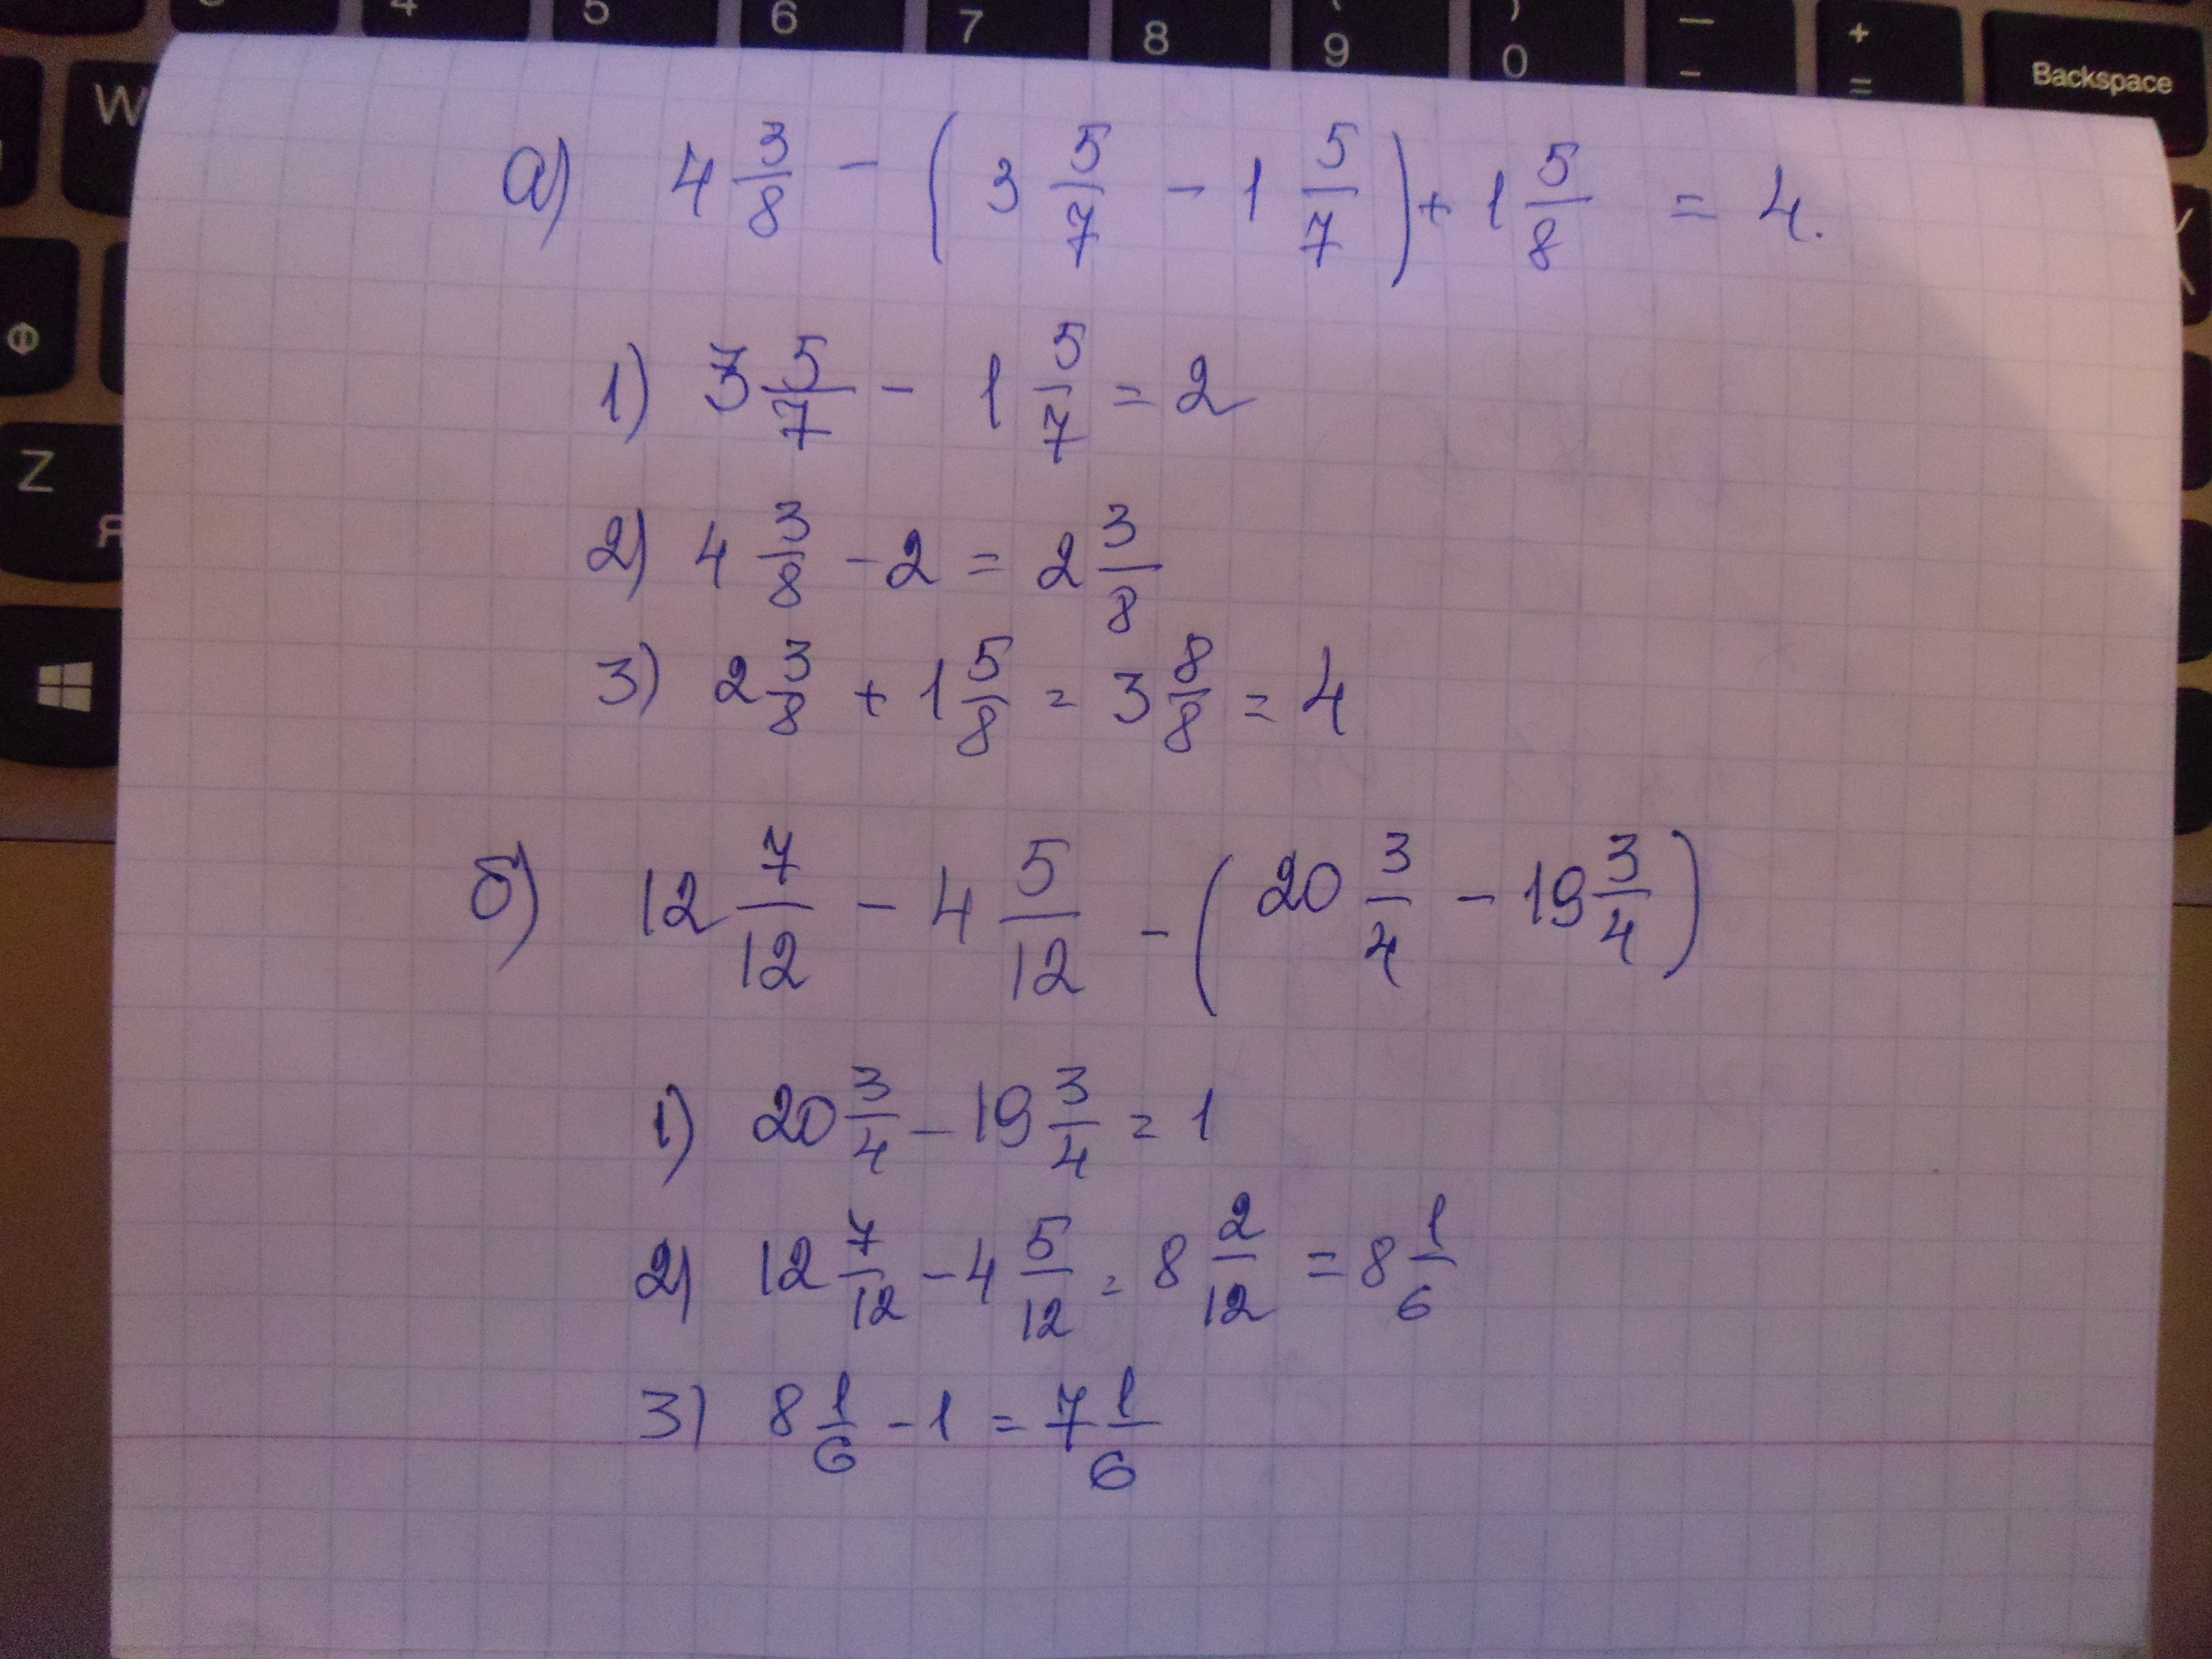 3 4 5 6 7 8 ( 9 ) 0 — - + = Backspace
W
Ф
Z
Я
а) 4 3/8 - (3 5/7 - 1 5/7) + 1 5/8 = 4.
1) 3 5/7 - 1 5/7 = 2
2) 4 3/8 - 2 = 2 3/8
3) 2 3/8 + 1 5/8 = 3 8/8 = 4
б) 12 7/12 - 4 5/12 - (20 3/4 - 19 3/4)
1) 20 3/4 - 19 3/4 = 1
2) 12 7/12 - 4 5/12 = 8 2/12 = 8 1/6
3) 8 1/6 - 1 = 7 1/6